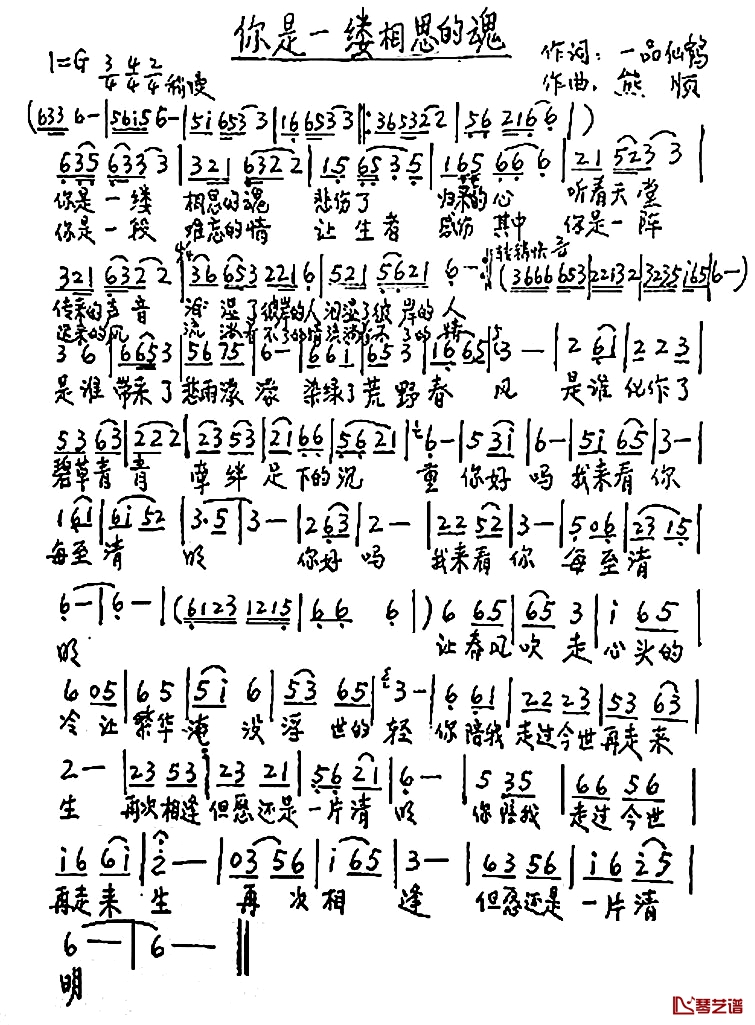 你是一缕相思的魂
1=G 3/4 4/4 2/4 稍慢
作词：一品仙鹤
作曲：熊顺
(633 6—|56i5 6—|5i 653 3|16 6533‖:365322|56 216 6|)
635 6333|321 6322|15 65 35|165 66 6|21 523 3|
你是一缕 相思的魂 悲伤了 归来的心 听着天堂
你是一段 难忘的情 让生者 感伤其中 你是一阵
321 6322|36 653 221 6|521 5621|6— :‖ (3666 653|22i32|3235 i65|6—)
传来的声音 泪湿了彼岸的人 泪湿了彼岸的人
3 6|6653|56 75|6—|66i|65 3|1665|3—|2 6i|22 3|
是谁带来了悲雨濛濛 染绿了荒野春风 是谁化作了
53 63|222|23 53|21 66|5621|6—|5 3i|6—|5i 65|3—|
碧草青青 牵绊足下的沉重 你好吗 我来看你
161|6i 52|3·5|3—|263|2—|22 52|3—|506|23 15|
每至清明 你好吗 我来看你 每至清
6—|6—|(6123 1215|66 6|) 6 65|65 3|i 65|
明 让春风吹走心头的
6 05|65|5i 6|53 65|3—|6 61|22 23|53 63|
冷 让繁华淹没浮世的轻 你陪我走过今世再走来
2—|23 53|23 21|56 21|6—|5 35|66 56|
生 再次相逢 但愿还是一片清明 你陪我 走过今世
i6 6i|2—|03 56|i65|3—|63 56|i6 i5|
再走来生 再次相逢 但愿还是一片清
6—|6—‖
明
琴艺谱